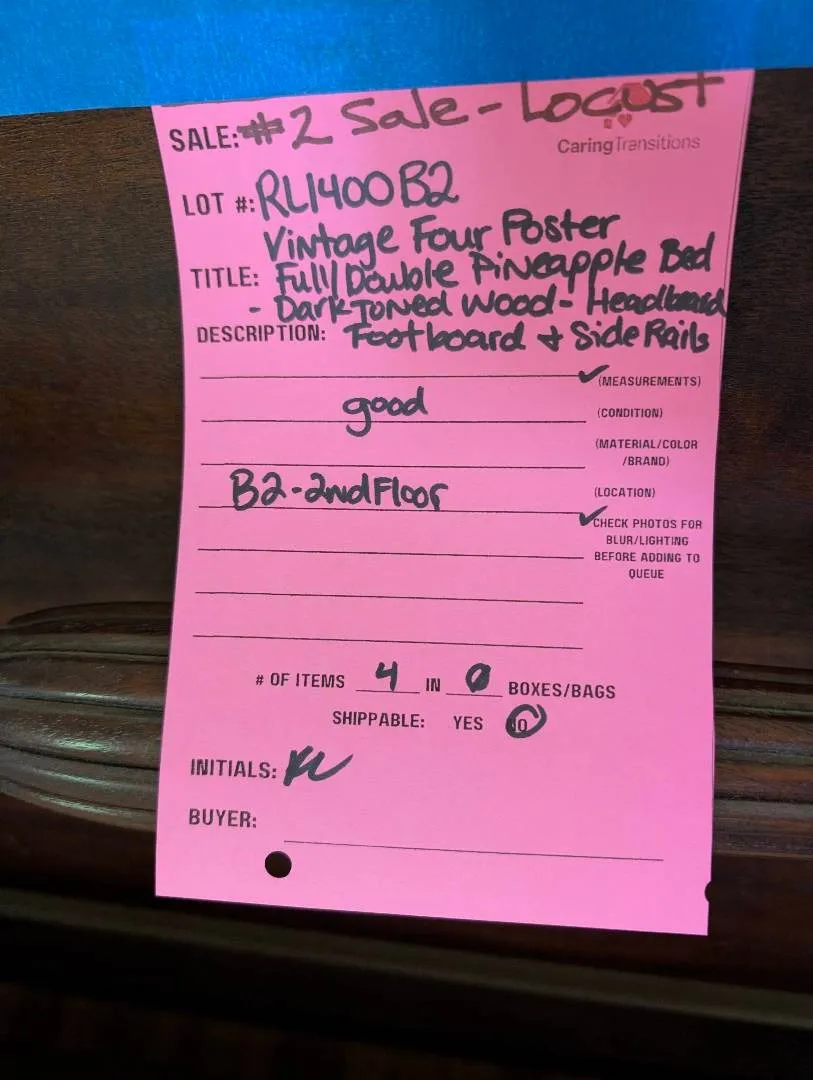 SALE: #2 Sale - Locust
CaringTransitions
LOT #: RL1400B2
Vintage Four Poster
TITLE: Full/Double Pineapple Bed
- Dark Toned Wood - Headboard
DESCRIPTION: Footboard + Side Rails
(MEASUREMENTS)
good (CONDITION)
(MATERIAL/COLOR
/BRAND)
B2-2nd Floor (LOCATION)
CHECK PHOTOS FOR
BLUR/LIGHTING
BEFORE ADDING TO
QUEUE
# OF ITEMS 4 IN 0 BOXES/BAGS
SHIPPABLE: YES NO
INITIALS:
BUYER: